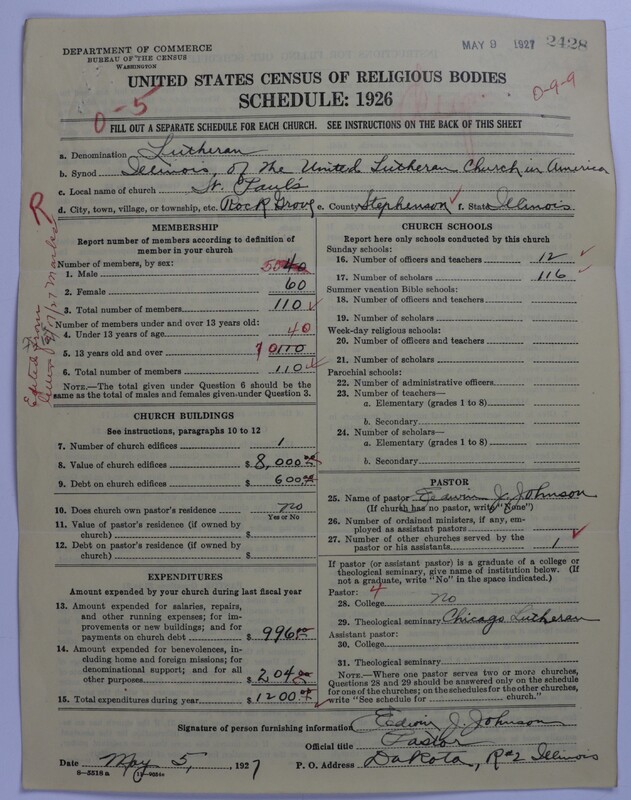 DEPARTMENT OF COMMERCE
BUREAU OF THE CENSUS
WASHINGTON
MAY 9 1927 2428
UNITED STATES CENSUS OF RELIGIOUS BODIES
SCHEDULE: 1926
0-5
0-9-9
FILL OUT A SEPARATE SCHEDULE FOR EACH CHURCH. SEE INSTRUCTIONS ON THE BACK OF THIS SHEET
a. Denomination Lutheran
b. Synod Illinois, of the United Lutheran Church in America
c. Local name of church St. Paul's
d. City, town, village, or township, etc. Rock Grove e. County Stephenson f. State Illinois
R
MEMBERSHIP
Report number of members according to definition of
member in your church
Number of members, by sex:
1. Male 50 40
2. Female 60
3. Total number of members 110
Number of members under and over 13 years old:
4. Under 13 years of age 40
5. 13 years old and over 70 110
6. Total number of members 110
NOTE.—The total given under Question 6 should be
same as the total of males and females given under Question 3.
CHURCH BUILDINGS
See instructions, paragraphs 10 to 12
7. Number of church edifices 1
8. Value of church edifices $ 8,000.00
9. Debt on church edifices $ 600.00
10. Does church own pastor's residence no
Yes or No
11. Value of pastor's residence (if owned by
church) $
12. Debt on pastor's residence (if owned by
church) $
EXPENDITURES
Amount expended by your church during last fiscal year
13. Amount expended for salaries, repairs,
and other running expenses; for im-
provements or new buildings; and for
payments on church debt $ 996.00
14. Amount expended for benevolences, in-
cluding home and foreign missions; for
denominational support; and for all
other purposes $ 204.00
15. Total expenditures during year $ 1200.00
CHURCH SCHOOLS
Report here only schools conducted by this church
Sunday schools:
16. Number of officers and teachers 12
17. Number of scholars 116
Summer vacation Bible schools:
18. Number of officers and teachers
19. Number of scholars
Week-day religious schools:
20. Number of officers and teachers
21. Number of scholars
Parochial schools:
22. Number of administrative officers
23. Number of teachers—
a. Elementary (grades 1 to 8)
b. Secondary
24. Number of scholars—
a. Elementary (grades 1 to 8)
b. Secondary
PASTOR
25. Name of pastor Edwin J. Johnson
(If church has no pastor, write "None")
26. Number of ordained ministers, if any, em-
ployed as assistant pastors
27. Number of other churches served by the
pastor or his assistants 1
If pastor (or assistant pastor) is a graduate of a college or
theological seminary, give name of institution below. (If
not a graduate, write "No" in the space indicated.)
Pastor: 4
28. College no
29. Theological seminary Chicago Lutheran
Assistant pastor:
30. College
31. Theological seminary
NOTE.—Where one pastor serves two or more churches,
Questions 28 and 29 should be answered only on the schedule
for one of the churches; on the schedules for the other churches,
write "See schedule for church."
Signature of person furnishing information Edwin J. Johnson
Official title Pastor
Date May 5, 1927 P. O. Address Dakota, R#2 Illinois
8-5518 a